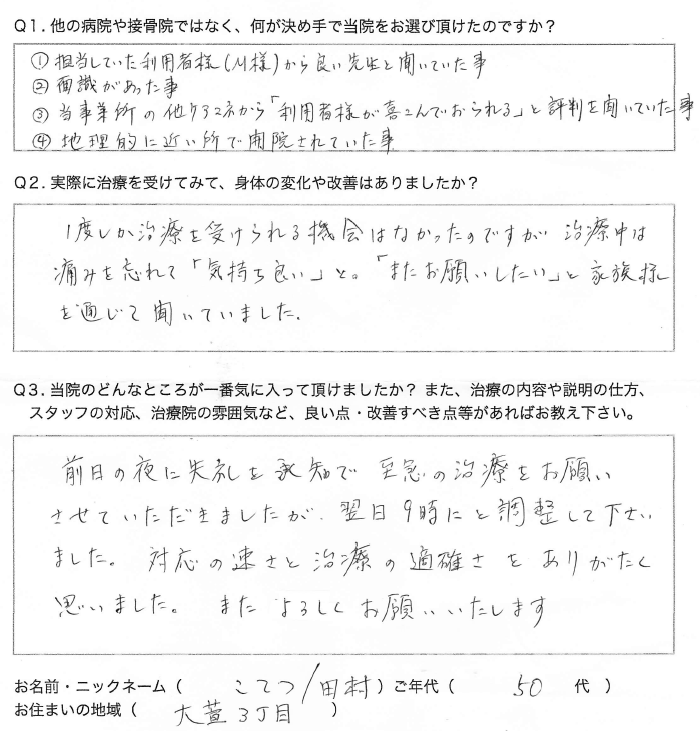 Q1. 他の病院や接骨院ではなく、何が決め手で当院をお選び頂けたのですか？
① 担当していた利用者様(M様)から良い先生と聞いていた事
② 面識があった事
③ 当事業所の他ケアマネから「利用者様が喜こんでおられる」と評判を聞いていた事
④ 地理的に近い所で開院されていた事
Q2. 実際に治療を受けてみて、身体の変化や改善はありましたか？
1度しか治療を受けられる機会はなかったのですが 治療中は
痛みを忘れて「気持ち良い」と。「またお願いしたい」と家族様
を通じて聞いていました.
Q3. 当院のどんなところが一番気に入って頂けましたか？ また、治療の内容や説明の仕方、
スタッフの対応、治療院の雰囲気など、良い点・改善すべき点等があればお教え下さい。
前日の夜に失礼を承知で 至急の治療をお願い
させていただきましたが、翌日9時にと調整して下さい
ました。 対応の速さと治療の適確さをありがたく
思いました。 またよろしくお願いいたします
お名前・ニックネーム（ こてつ/田村 ）ご年代（ 50 代 ）
お住まいの地域（ 大萱3丁目 ）